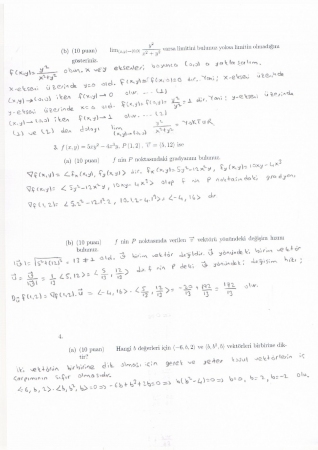 (b) (10 puan) lim(x,y)→(0,0) y²/(x²+y²) varsa limitini bulunuz yoksa limitin olmadığını
gösteriniz.
f(x,y) = y²/(x²+y²) olsun. x ve y eksenleri boyunca (0,0)'a yaklaşalım.
x-ekseni üzerinde y=0 f(x,0)=0 dır. Yani; x-ekseni üzerinde
(x,y)→(0,0) iken f(x,y)→0 olur. ... (1)
y-ekseni üzerinde x=0 f(0,y) = y²/y² = 1 dir. Yani; y-ekseni üzerinde
(x,y)→(0,0) iken f(x,y)→1 olur ... (2)
(1) ve (2) den dolayı lim (x,y)→(0,0) y²/(x²+y²) = YOKTUR
3. f(x,y) = 5xy² − 4x³y, P(1,2), v = (5,12) ise
(a) (10 puan) f nin P noktasındaki gradyanını bulunuz.
∇f(x,y) = <fx(x,y), fy(x,y)> dir. fx(x,y) = 5y²−12x²y, fy(x,y) = 10xy−4x³
∇f(x,y) = <5y²−12x²y, 10xy−4x³> olup f nin P noktasındaki gradyanı
∇f(1,2) = <5.2²−12.1².2, 10.1.2−4.1³> = <−4, 16> dır
(b) (10 puan) f nin P noktasında verilen v vektörü yönündeki değişim hızını
bulunuz.
|v| = √(5²+(12)²) = 13 ≠ 1 v birim vektör değildir. v yönündeki birim vektör
u = v/|v| = 1/13 <5,12> = <5/13, 12/13> f nin P deki v yönündeki değişim hızı;
Duf(1,2) = ∇f(1,2).u = <−4, 16>.<5/13, 12/13> = −20/13 + 192/13 = 172/13 olur.
4.
(a) (10 puan) Hangi b değerleri için (−6, b, 2) ve (b, b², b) vektörleri birbirine dik-
tir?
iki vektörün birbirine dik olması için gerek ve yeter koşul vektörlerin iç
çarpımının sıfır olmasıdır.
<−6, b, 2>.<b, b², b> = 0 ⇒ −6b+b³+2b = 0 ⇒ b(b²−4) = 0 ⇒ b=0, b=2, b=−2